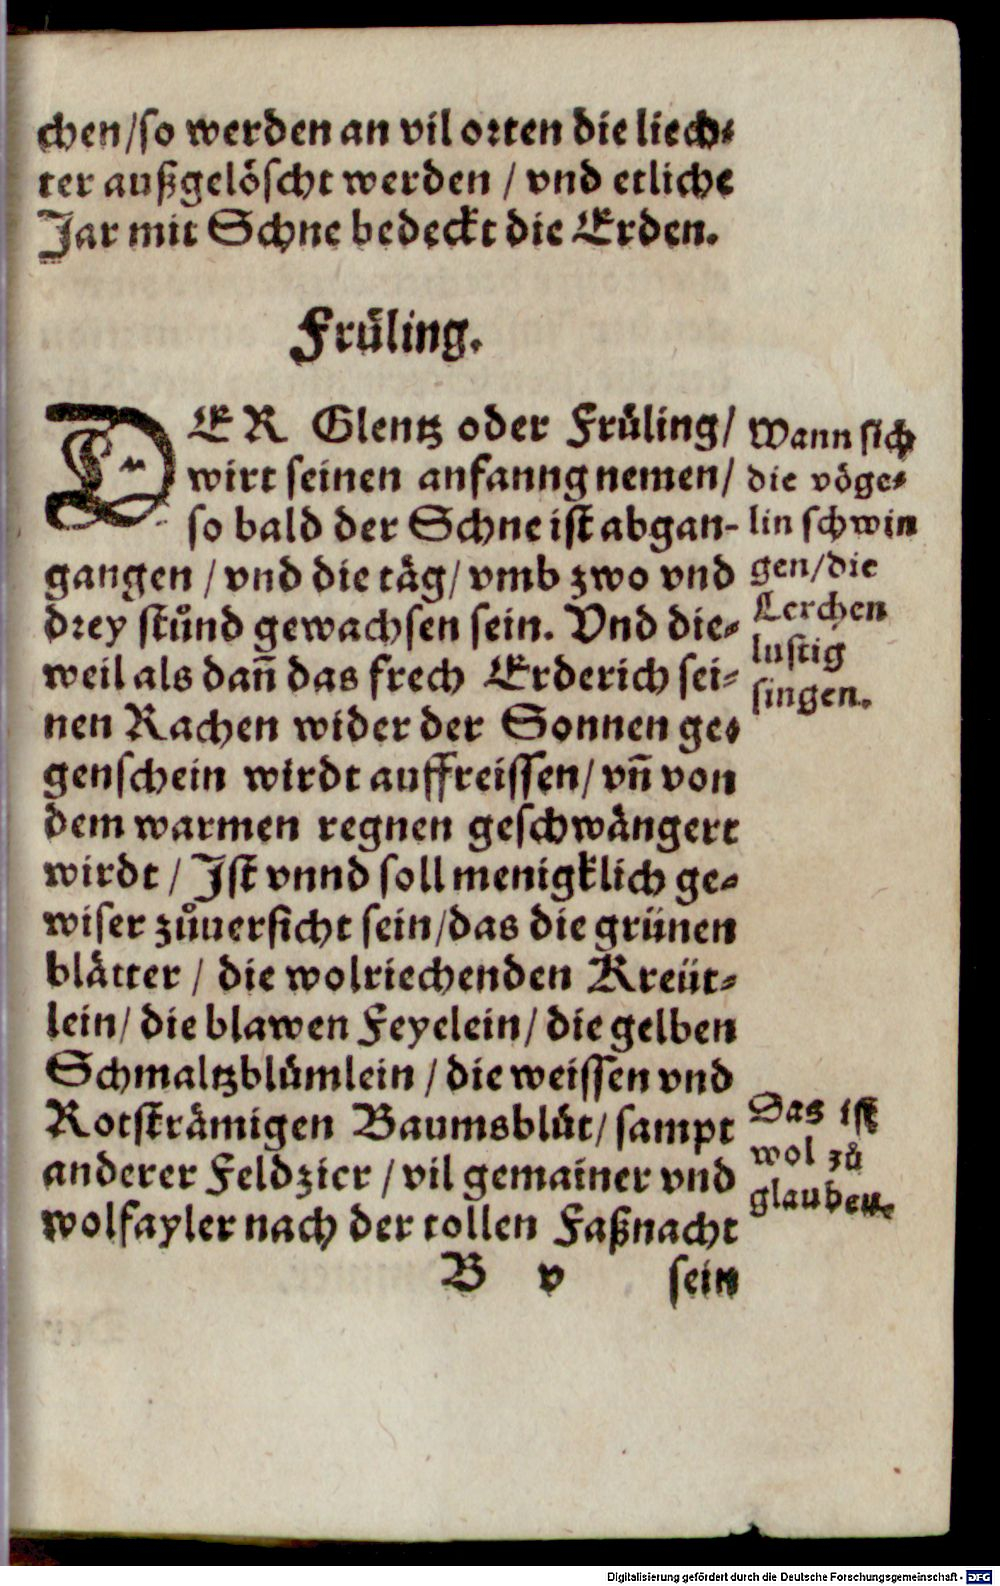 chen/so werden an vil orten die liech⸗
ter außgelöscht werden / vnd etliche
Jar mit Schne bedeckt die Erden.
Früling.
DER Glentz oder Früling/
wirt seinen anfanng nemen/
so bald der Schne ist abgan-
gangen / vnd die täg/ vmb zwo vnd
drey stůnd gewachsen sein. Vnd die⸗
weil als dañ das frech Erderich sei⸗
nen Rachen wider der Sonnen ge⸗
genschein wirdt auffreissen/ vñ von
dem warmen regnen geschwängert
wirdt / Ist vnnd soll menigklich ge⸗
wiser zůuersicht sein/das die grünen
blätter / die wolriechenden Kreüt⸗
lein/ die blawen Feyelein/ die gelben
Schmaltzblümlein / die weissen vnd
Rotsträmigen Baumsblüt/ sampt
anderer Feldzier / vil gemainer vnd
wolfayler nach der tollen Faßnacht
B v sein
Wann sich
die vöge⸗
lin schwin
gen/die
Lerchen
lustig
singen.
Das ist
wol zů
glauben.
Digitalisierung gefördert durch die Deutsche Forschungsgemeinschaft - DFG